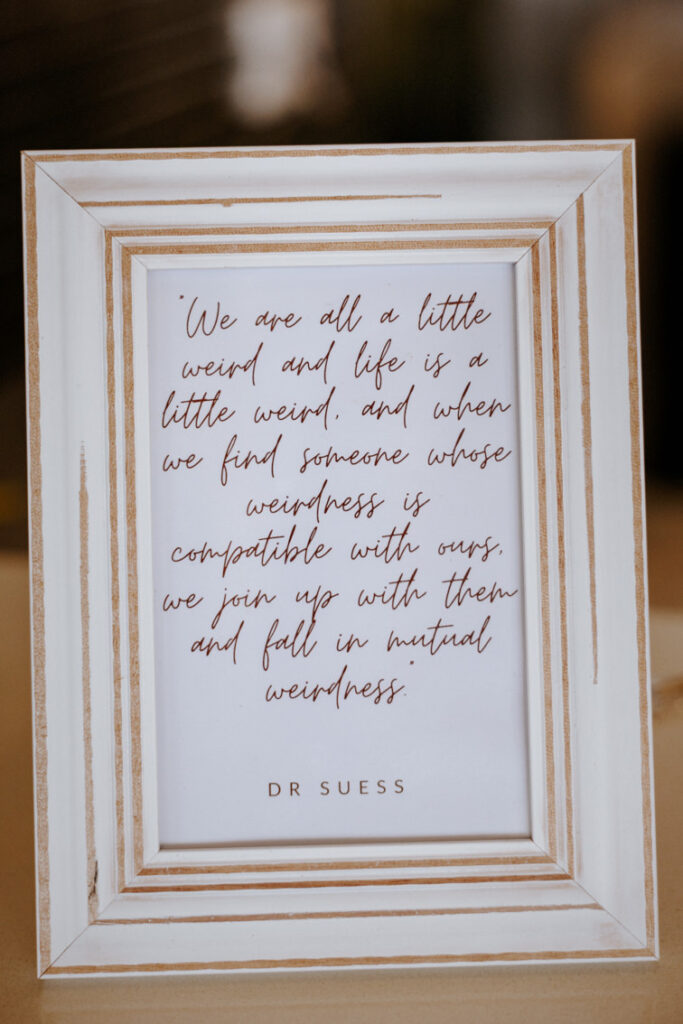 "We are all a little
weird and life is a
little weird, and when
we find someone whose
weirdness is
compatible with ours,
we join up with them
and fall in mutual
weirdness."
DR SUESS